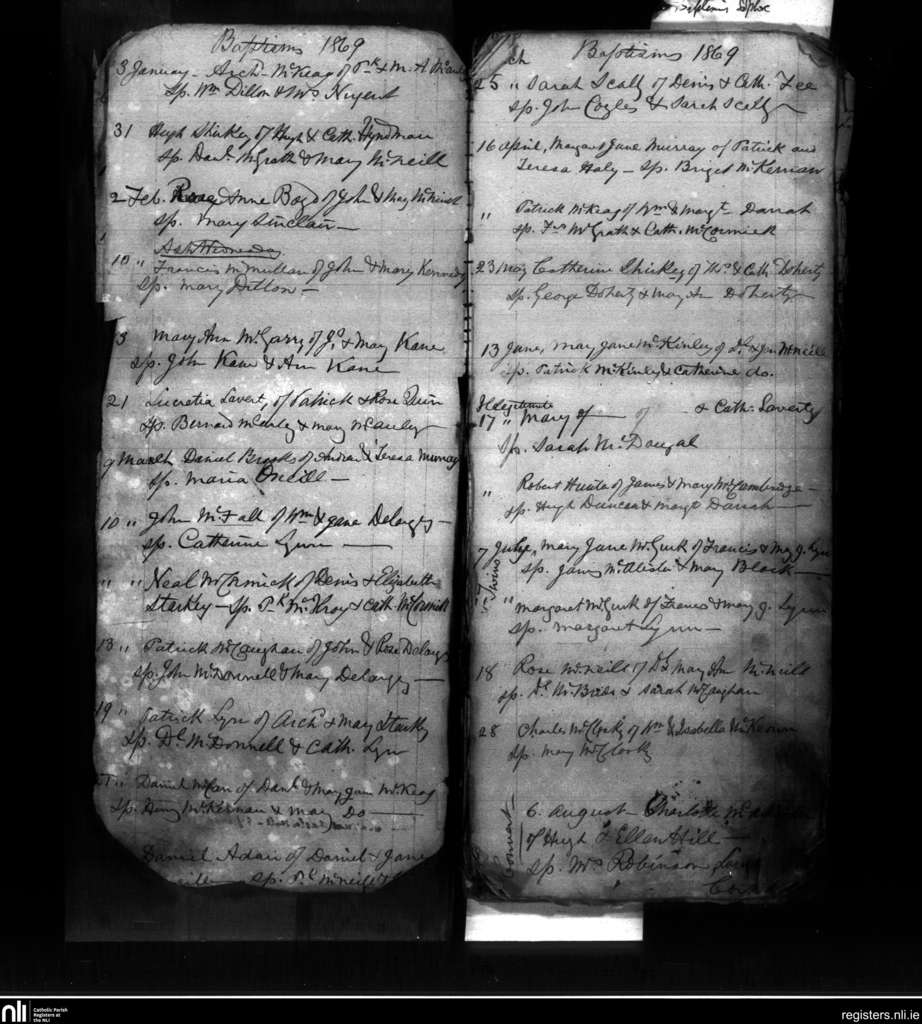 Baptisms 1869
3 January - Archd McKeag of Pk & M. A
Sp. Wm Dillon & Mrs Nugent
31 Hugh Shirley of Hugh & Cath. Hyndman
Sp. Danl McGrath & Mary McNeill
2 Feb. Rose Anne Boyd of John & Mary
Sp. Mary Sinclair -
Ash Wednesday
10 " Francis McMullan of John & Mary Kennedy
Sp. Mary Dillon -
Mary Ann McGarry of Js & May Kane
Sp. John Kane & Ann Kane
21 Lucretia Lavert, of Patrick & Rose Quin
Sp. Bernard McAuley & May McAuley
9 March Daniel Brooks of Andrew & Teresa Murray
Sp. Maria ONeill -
10 " John McFall of Wm & Jane Delargy -
Sp. Catherine Lynn -
" " Neal McCormick of Denis & Elizabeth
Starkey - Sp. Pk McIlroy & Cath. McCormick
13 " Patrick McCaughan of John & Rose Delargy
Sp. John McDonnell & Mary Delargy -
19 " Patrick Lynn of Archd & May Starkey
Sp. Dl McDonnell & Cath. Lynn
" Daniel of Danl & May Jane McKeag
Sp. Henry McKernan & May Do -
Daniel Adair of Daniel & Jane
Sp. McNeill &
ch Baptisms 1869
25 " Sarah Scally of Denis & Cath. Fee
Sp. John Coyles & Sarah Scally
16 April, Margaret Jane Murray of Patrick and
Teresa Haly - Sp. Briget McKernan
" Patrick McKeag of Wm & Margt Darrah
Sp. Fs McGrath & Cath. McCormick
23 May Catherine Shirley of Thos & Cath Doherty
Sp. George Doherty & May An Doherty
13 June, May Jane McKinley of Dl & Jn McNeill
Sp. Patrick McKinley & Catherine do.
Illegitimate
17 " Mary of - of & Cath. Laverty
Sp. Sarah McDougal
" Robert Hunter of James & Mary McCambridge -
Sp. Hugh Duncan & Margt Darrah
7 July, Mary Jane McGurk of Francis & May J. Lynn
Sp. James McAlister & May Black -
Twins
" Margaret McGurk of Francis & May J. Lynn
Sp. Margaret Lynn -
18 Rose McNeill of Dl & May Ann McNeill
Sp. Dl McBride & Sarah McCaughan
28 Charles McClorky of Wm & Isabella McKeown
Sp. May McClorky
Convert
6. August Charlotte
of Hugh & Ellen Hill -
Sp. Mrs Robinson
nli
Catholic Parish
Registers at
the NLI
registers.nli.ie